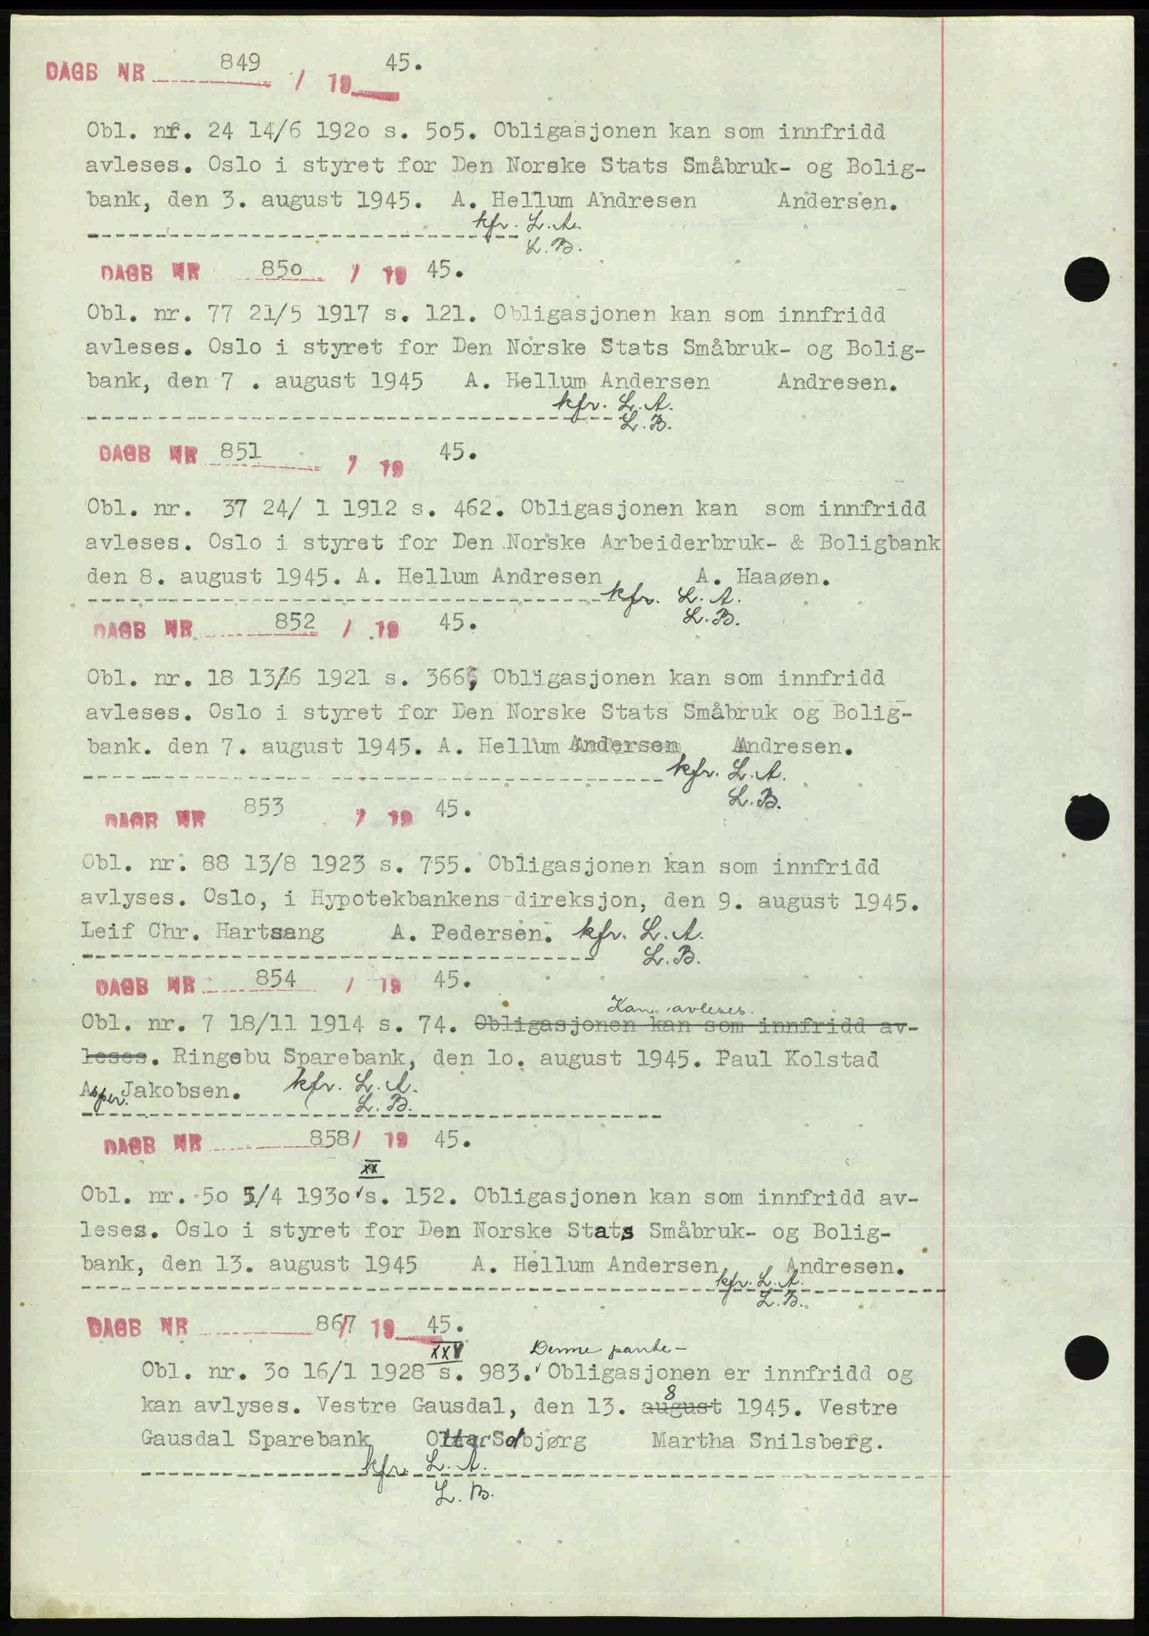 DAGB NR 849 / 19 45.
Obl. nr. 24 14/6 1920 s. 505. Obligasjonen kan som innfridd
avleses. Oslo i styret for Den Norske Stats Småbruk- og Bolig-
bank, den 3. august 1945. A. Hellum Andresen Andersen.
kfr. L.A.
L.B.
DAGB NR 850 / 19 45.
Obl. nr. 77 21/5 1917 s. 121. Obligasjonen kan som innfridd
avleses. Oslo i styret for Den Norske Stats Småbruk- og Bolig-
bank, den 7 . august 1945 A. Hellum Andersen Andresen.
kfr. L.A.
L.B.
DAGB NR 851 / 19 45.
Obl. nr. 37 24/ 1 1912 s. 462. Obligasjonen kan som innfridd
avleses. Oslo i styret for Den Norske Arbeiderbruk- & Boligbank
den 8. august 1945. A. Hellum Andresen A. Haaøen.
kfr. L.A.
L.B.
DAGB NR 852 / 19 45.
Obl. nr. 18 13/6 1921 s. 366, Obligasjonen kan som innfridd
avleses. Oslo i styret for Den Norske Stats Småbruk og Bolig-
bank. den 7. august 1945. A. Hellum Andersen Andresen.
kfr. L.A.
L.B.
DAGB NR 853 / 19 45.
Obl. nr. 88 13/8 1923 s. 755. Obligasjonen kan som innfridd
avlyses. Oslo, i Hypotekbankens direksjon, den 9. august 1945.
Leif Chr. Hartsang A. Pedersen. kfr. L.A.
L.B.
DAGB NR 854 / 19 45.
Kan avleses.
Obl. nr. 7 18/11 1914 s. 74. Obligasjonen kan som innfridd av-
leses. Ringebu Sparebank, den 10. august 1945. Paul Kolstad
Asper Jakobsen. kfr. L.A.
L.B.
DAGB NR 858/ 19 45.
XX
Obl. nr. 50 5/4 1930 s. 152. Obligasjonen kan som innfridd av-
leses. Oslo i styret for Den Norske Stats Småbruk- og Bolig-
bank, den 13. august 1945 A. Hellum Andersen Andresen.
kfr. L.A.
L.B.
DAGB NR 867/ 19 45.
XXV Denne pante-
Obl. nr. 30 16/1 1928 s. 983. Obligasjonen er innfridd og
8
kan avlyses. Vestre Gausdal, den 13. august 1945. Vestre
Gausdal Sparebank Ottar Solbjørg Martha Snilsberg.
kfr. L.A.
L.B.